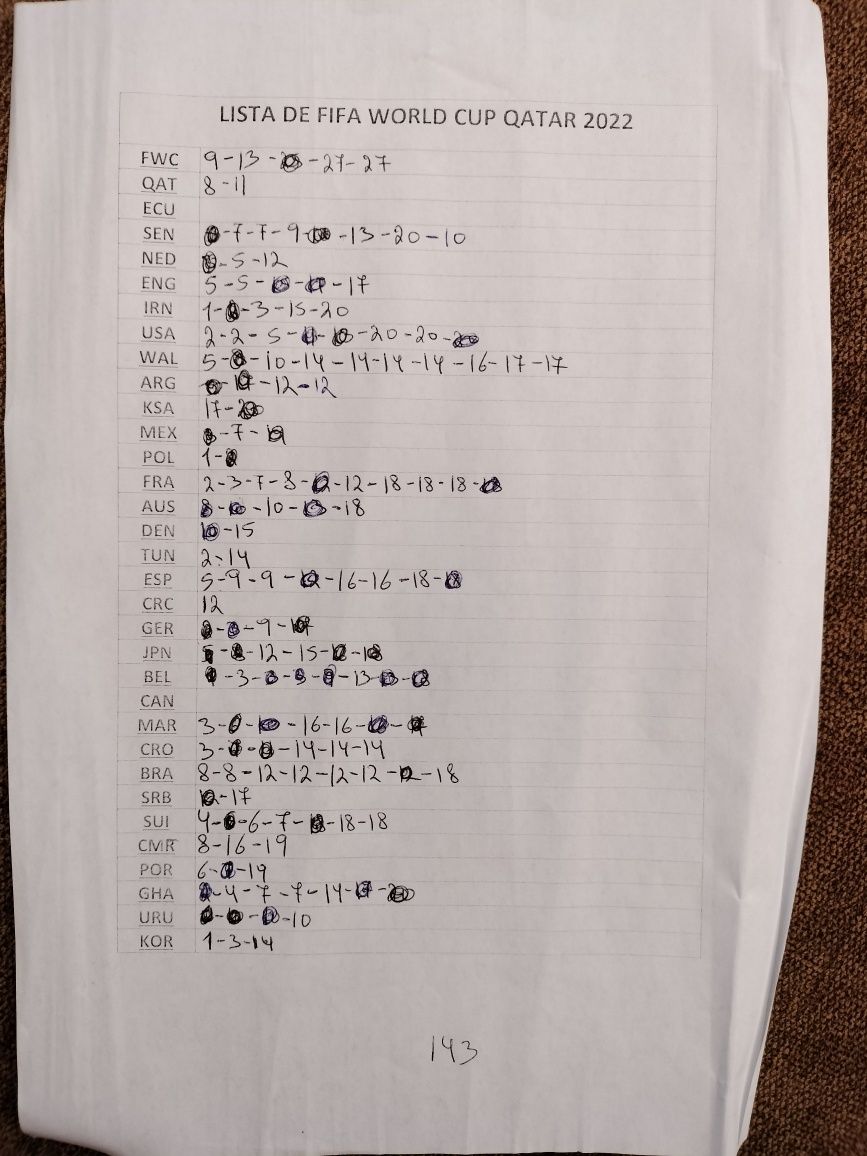 LISTA DE FIFA WORLD CUP QATAR 2022
FWC 9-13- -27-27
QAT 8-11
ECU
SEN -7-7-9- -13-20-10
NED -5-12
ENG 5-5- - -17
IRN 1- -3-15-20
USA 2-2-5- - -20-20-
WAL 5- -10-14-14-14-14-16-17-17
ARG - -12-12
KSA 17-
MEX -7-
POL 1-
FRA 2-3-7-8- -12-18-18-18-
AUS - -10- -18
DEN -15
TUN 2-14
ESP 5-9-9- -16-16-18-
CRC 12
GER - -9-
JPN - -12-15- -
BEL -3- - - -13- -
CAN
MAR 3- - -16-16- -
CRO 3- - -14-14-14
BRA 8-8-12-12-12-12- -18
SRB -17
SUI 4- -6-7- -18-18
CMR 8-16-19
POR 6- -19
GHA -4-7-7-14- -
URU - - -10
KOR 1-3-14
143